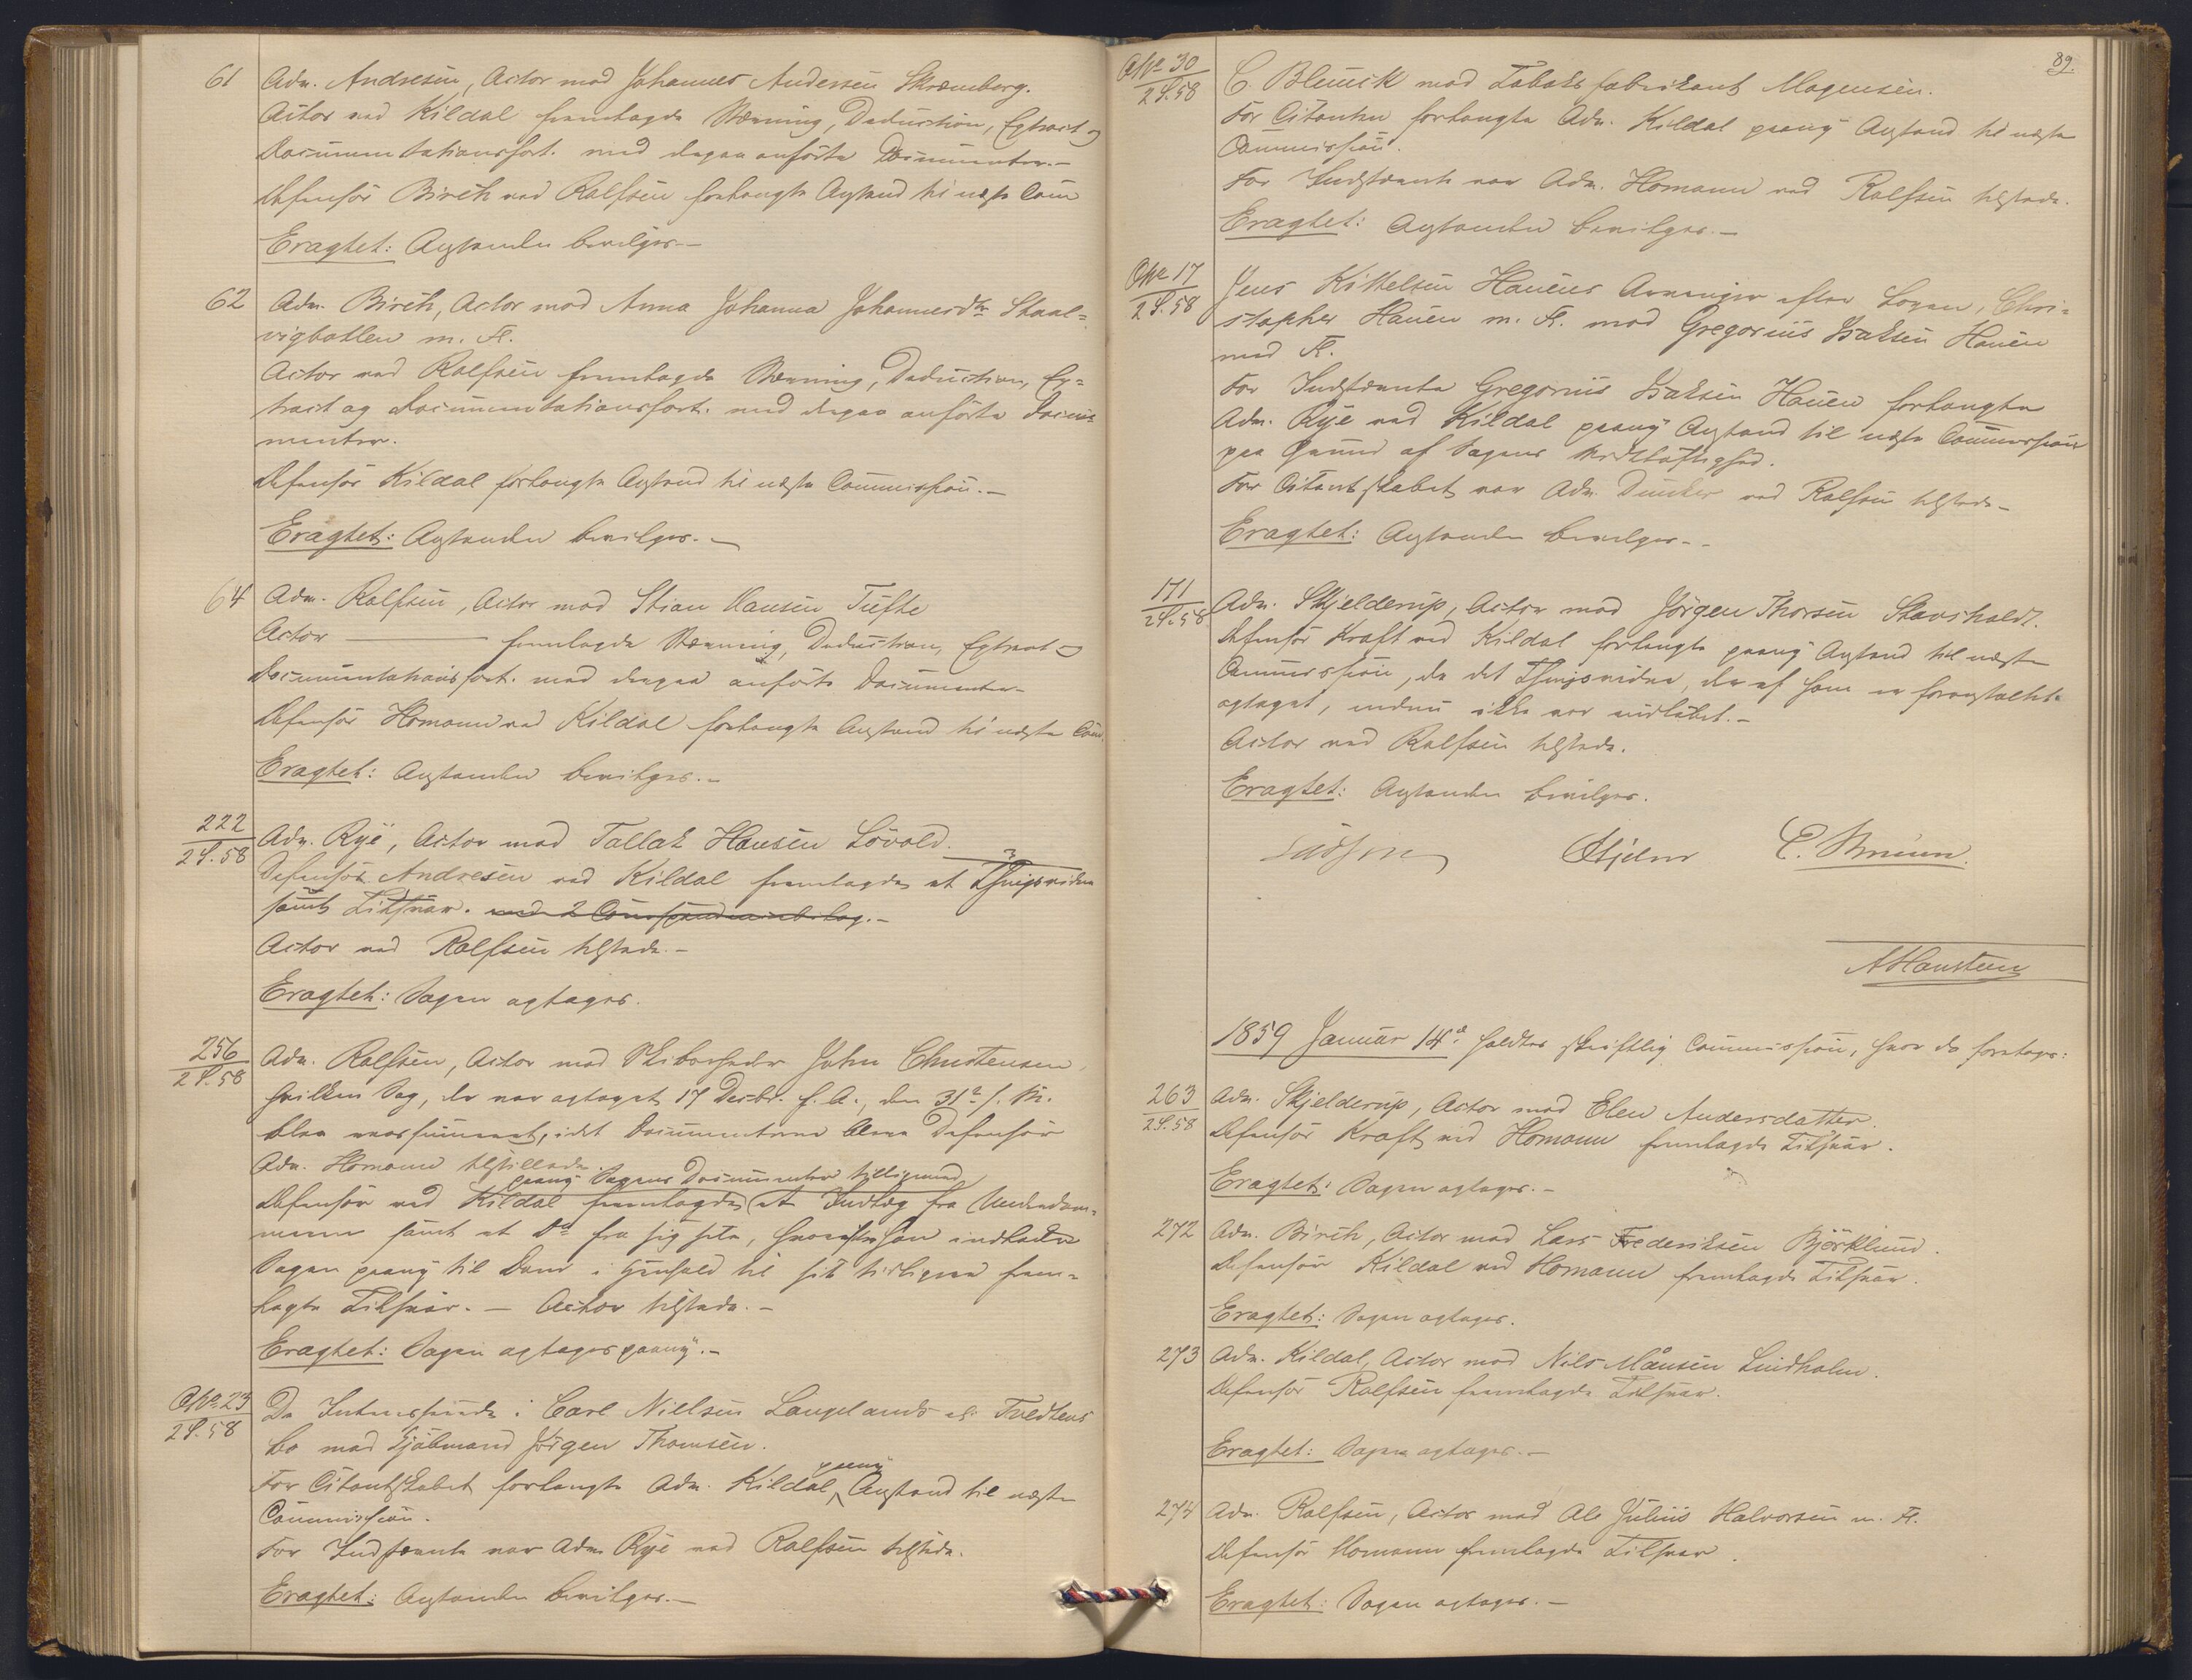 61 Adv. Andresen, Actor mod Johannes Andersen Skramberg.
Actor ved Kildal fremlagde Stævning, Deduction, Extract og
Documentationsfort. med derpaa anførte Documenter.-
Defensor Birch ved Rolfsen forlangte Anstand til næste Com
Eragtet: Anstanden bevilges.-
62 Adv. Birch, Actor mod Anna Johanna Johannesdtr Staal-
vigbatlen m. Fl.
Actor ved Rolfsen fremlagde Stævning, Deduction, Ex-
tract og Documentationsfort. med derpaa anførte Docu-
menter.
Defensor Kildal forlangte Anstand til næste Commission.-
Eragtet: Anstanden bevilges.-
64 Adv. Rolfsen, Actor mod Stian Hansen Tufte
Actor ——— fremlagde Stævning, Deduction, Extract og
Documentationsfort. med derpaa anførte Documenter.-
Defensor Homann ved Kildal forlangte Anstand til næste Com.
Eragtet: Anstanden bevilges.-
222/2S.58 Adv. Rye, Actor mod Tallak Hansen Lövold.
Defensor Andresen ved Kildal fremlagde et Thingsvidne
samt Tilsvar. med 2
Actor ved Rolfsen tilstede.-
Eragtet: Sagen optages.
256/2S.58 Adv. Rolfsen, Actor mod Skibsrheder John Christensen,
hvilken Sag, der var optaget 17 Decbr. f. A., den 31te s. M.
blev reassumeret, idet Documenterne bleve Defensor
Adv. Homann tilstillede.
paany Sagens Documenter tilligemed
Defensor ved Kildal fremlagde et Indlæg fra Underdom-
meren samt et Do fra sig selv, hvorefter han indlader
Sagen paany til Dom i Henhold til sit tidligere frem-
lagte Tilsvar. - Actor tilstede.-
Eragtet: Sagen optages paany.-
Asv. 23/2S.58 De Interesserede i Carl Nielsen Langelands el. Tvedtens
bo mod Kjöbmand Jörgen Thomsen.
paany
For Citantskabet forlangte Adv. Kildal Anstand til næste
Commission.
For Indstævnte var Adv. Rye ved Rolfsen tilstede.
Eragtet: Anstanden bevilges.-
89.
Asv. 30/2S.58 C. Blunck mod Tobaksfabrikant Mogensen.
For Citanten forlangte Adv. Kildal paany Anstand til næste
Commission.
For Indstævnte var Adv. Homann ved Rolfsen tilstede.
Eragtet: Anstanden bevilges.-
Asv. 17/2S.58 Jens Kittelsen Hauens Arvinger efter Loven, Chri-
stopher Hauen m. Fl. mod Gregorius Isaksen Hauen
med Fl.
For Indstævnte Gregorius Isaksen Hauen forlangte
Adv. Rye ved Kildal paany Anstand til næste Commission
paa Grund af Sagens Vidtløftighed.
For Citantskabet var Adv. Duncker ved Rolfsen tilstede-
Eragtet: Anstanden bevilges.-
171/2S.58 Adv. Skjelderup, Actor mod Jörgen Thorsen Stavsholdt.
Defensor Kraft ved Kildal forlangte paany Anstand til næste
Commission, da det Thingsvidne, der af ham er foranstaltet
optaget, endnu ikke var indløbet.-
Actor ved Rolfsen tilstede.
Eragtet: Anstanden bevilges.
Hjelm E. Bruun.
AHansteen
1859 Januar 14de holdtes skriftlig Commission, hvor da foretages:
263/2S.58 Adv. Skjelderup, Actor mod Elen Andersdatter.
Defensor Kraft ved Homann fremlagde Tilsvar.
Eragtet: Sagen optages.-
272 Adv. Birch, Actor mod Lars Frederiksen Björklund.
Defensor Kildal ved Homann fremlagde Tilsvar.
Eragtet: Sagen optages.
273 Adv. Kildal, Actor mod Nils Månsen Lindholm.
Defensor Rolfsen fremlagde Tilsvar.
Eragtet: Sagen optages.-
274 Adv. Rolfsen, Actor mod Ole Julius Halvorsen m. Fl.
Defensor Homann fremlagde Tilsvar.
Eragtet: Sagen optages.-